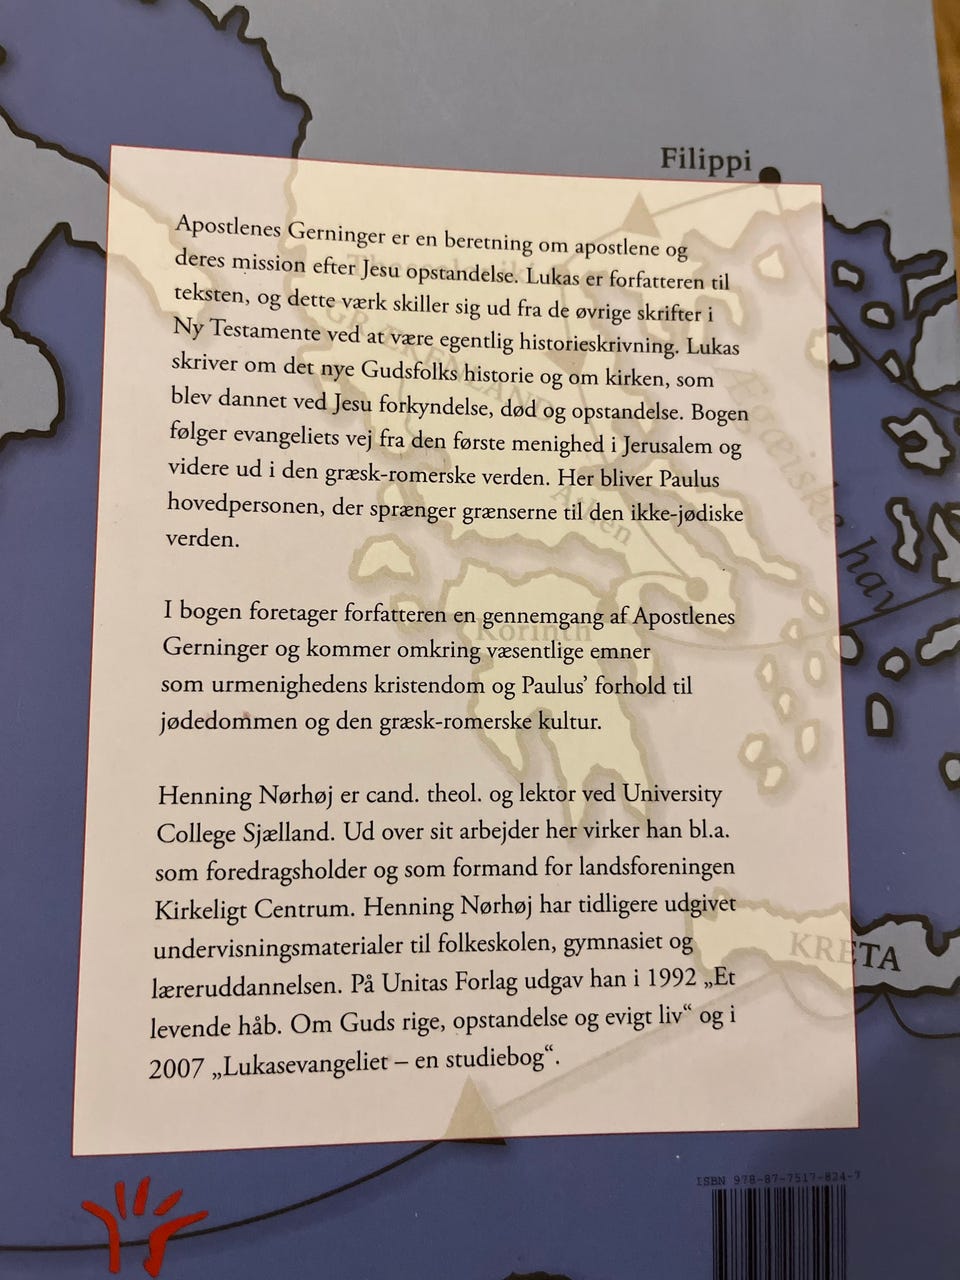 Filippi
Apostlenes Gerninger er en beretning om apostlene og
deres mission efter Jesu opstandelse. Lukas er forfatteren til
teksten, og dette værk skiller sig ud fra de øvrige skrifter i
Ny Testamente ved at være egentlig historieskrivning. Lukas
skriver om det nye Gudsfolks historie og om kirken, som
blev dannet ved Jesu forkyndelse, død og opstandelse. Bogen
følger evangeliets vej fra den første menighed i Jerusalem og
videre ud i den græsk-romerske verden. Her bliver Paulus
hovedpersonen, der sprænger grænserne til den ikke-jødiske
verden.
I bogen foretager forfatteren en gennemgang af Apostlenes
Gerninger og kommer omkring væsentlige emner
som urmenighedens kristendom og Paulus’ forhold til
jødedommen og den græsk-romerske kultur.
Henning Nørhøj er cand. theol. og lektor ved University
College Sjælland. Ud over sit arbejder her virker han bl.a.
som foredragsholder og som formand for landsforeningen
Kirkeligt Centrum. Henning Nørhøj har tidligere udgivet
undervisningsmaterialer til folkeskolen, gymnasiet og
læreruddannelsen. På Unitas Forlag udgav han i 1992 „Et
levende håb. Om Guds rige, opstandelse og evigt liv“ og i
2007 „Lukasevangeliet – en studiebog“.
GRÆKENLAND
Ægæiske hav
Athen
Korinth
KRETA
ISBN 978-87-7517-824-7